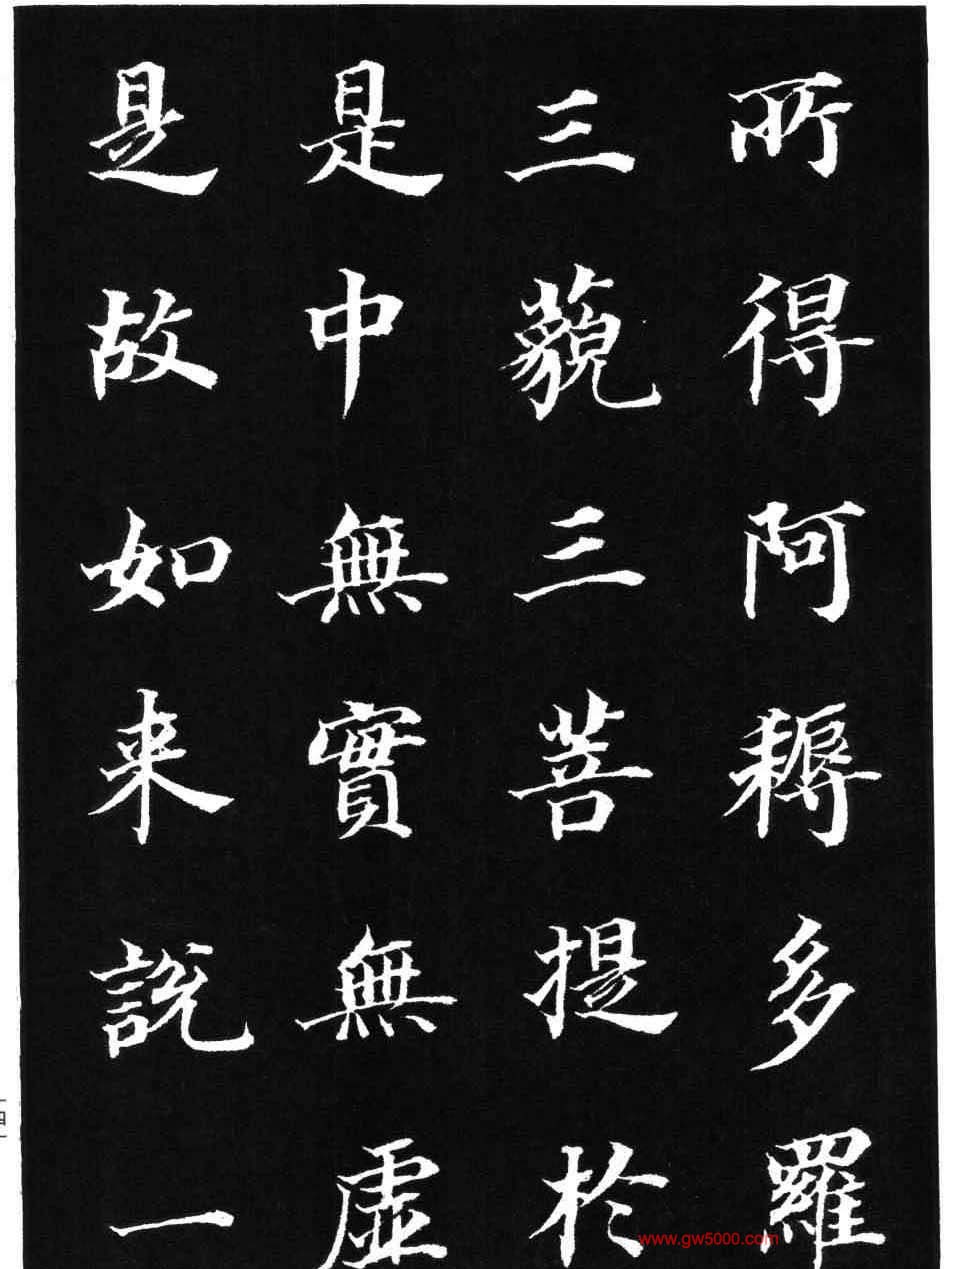 所得阿耨多羅
三藐三菩提於
是中無實無虛
是故如来說一
四
www.gw5000.com